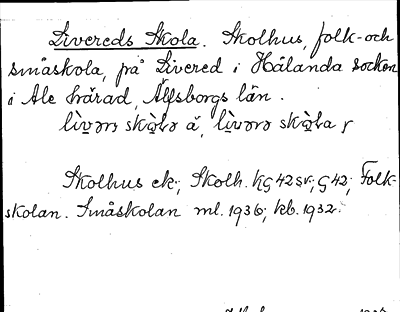 Livereds Skola. Skolhus, folk- och
småskola, på Livered i Hålanda socken
i Ale härad, Älfsborgs län.
Skolhus ek.; Skolh. kG 42 sv.; G 42; Folk-
skolan. Småskolan ml. 1936; kb. 1932.